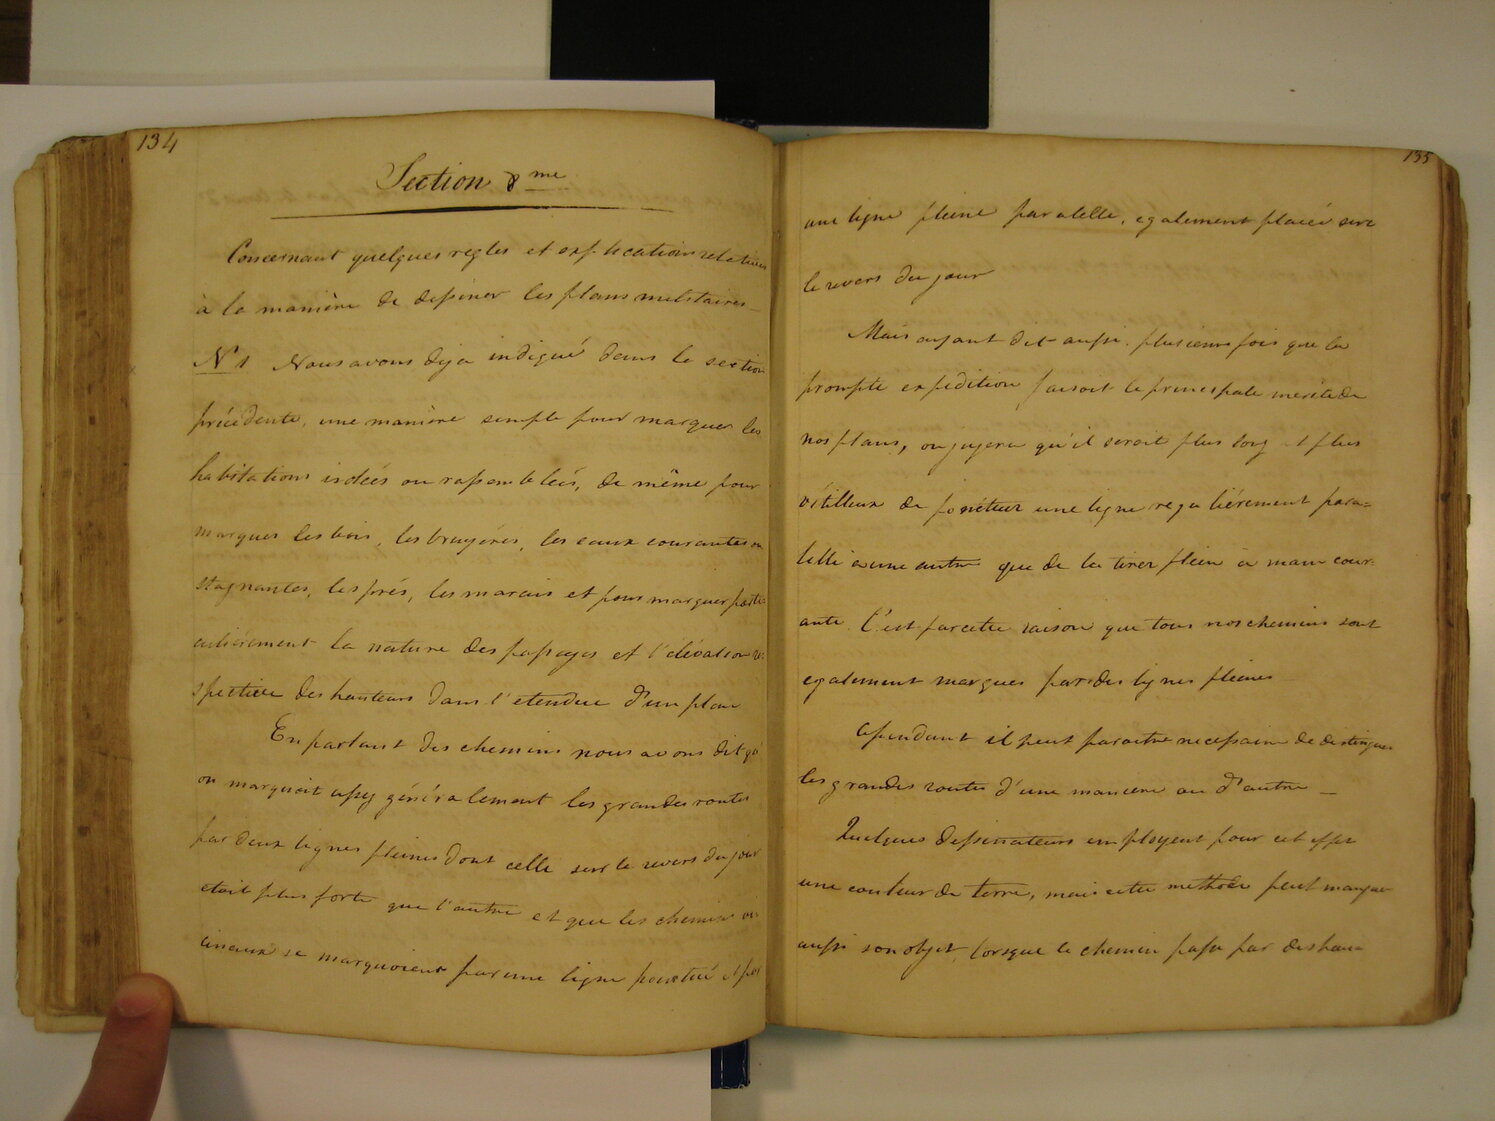 134
Section 8me
Concernant quelques regles et explications relatives
à la manière de dessiner les plans militaires
N 1 Nous avons deja indiqué dans la section
précédente, une manière simple pour marquer les
habitations isolées ou rassemblées, de même pour
marquer les bois, les bruyéres, les eaux courantes ou
stagnantes, les prés, les marais et pour marquer parti-
culierement la nature des passages et l'élévation re-
spective des hauteurs dans l'etendue d'un plan
En parlant des chemins nous avons dit qu'
on marquoit assez généralement les grandes routes
par deux lignes pleines dont celle sur le revers du jour
etoit plus forte que l'autre et que les chemins vi-
cinaux se marquoient par une ligne pointué et par
135
une ligne pleine paralelle, egalement placée sur
le revers du jour
Mais ayant dit aussi plusieurs fois que la
prompte expédition faisoit le principale merite de
nos plans, on jugera qu'il seroit plus long et plus
vétilleux de ponctuer une ligne regulièrement para=
lelle à une autre que de la tirer plein à main cour-
ante. C'est par cette raison que tous nos chemins sont
egalement marques par des lignes pleines
Cependant il peut paraitre necessaire de distinguer
les grandes routes d'une maniere ou d'autre —
Quelques dessinateurs employent pour cet effet
une couleur de terre, mais cette methode peut manquer
aussi son objet, lorsque le chemin passe par des hau=